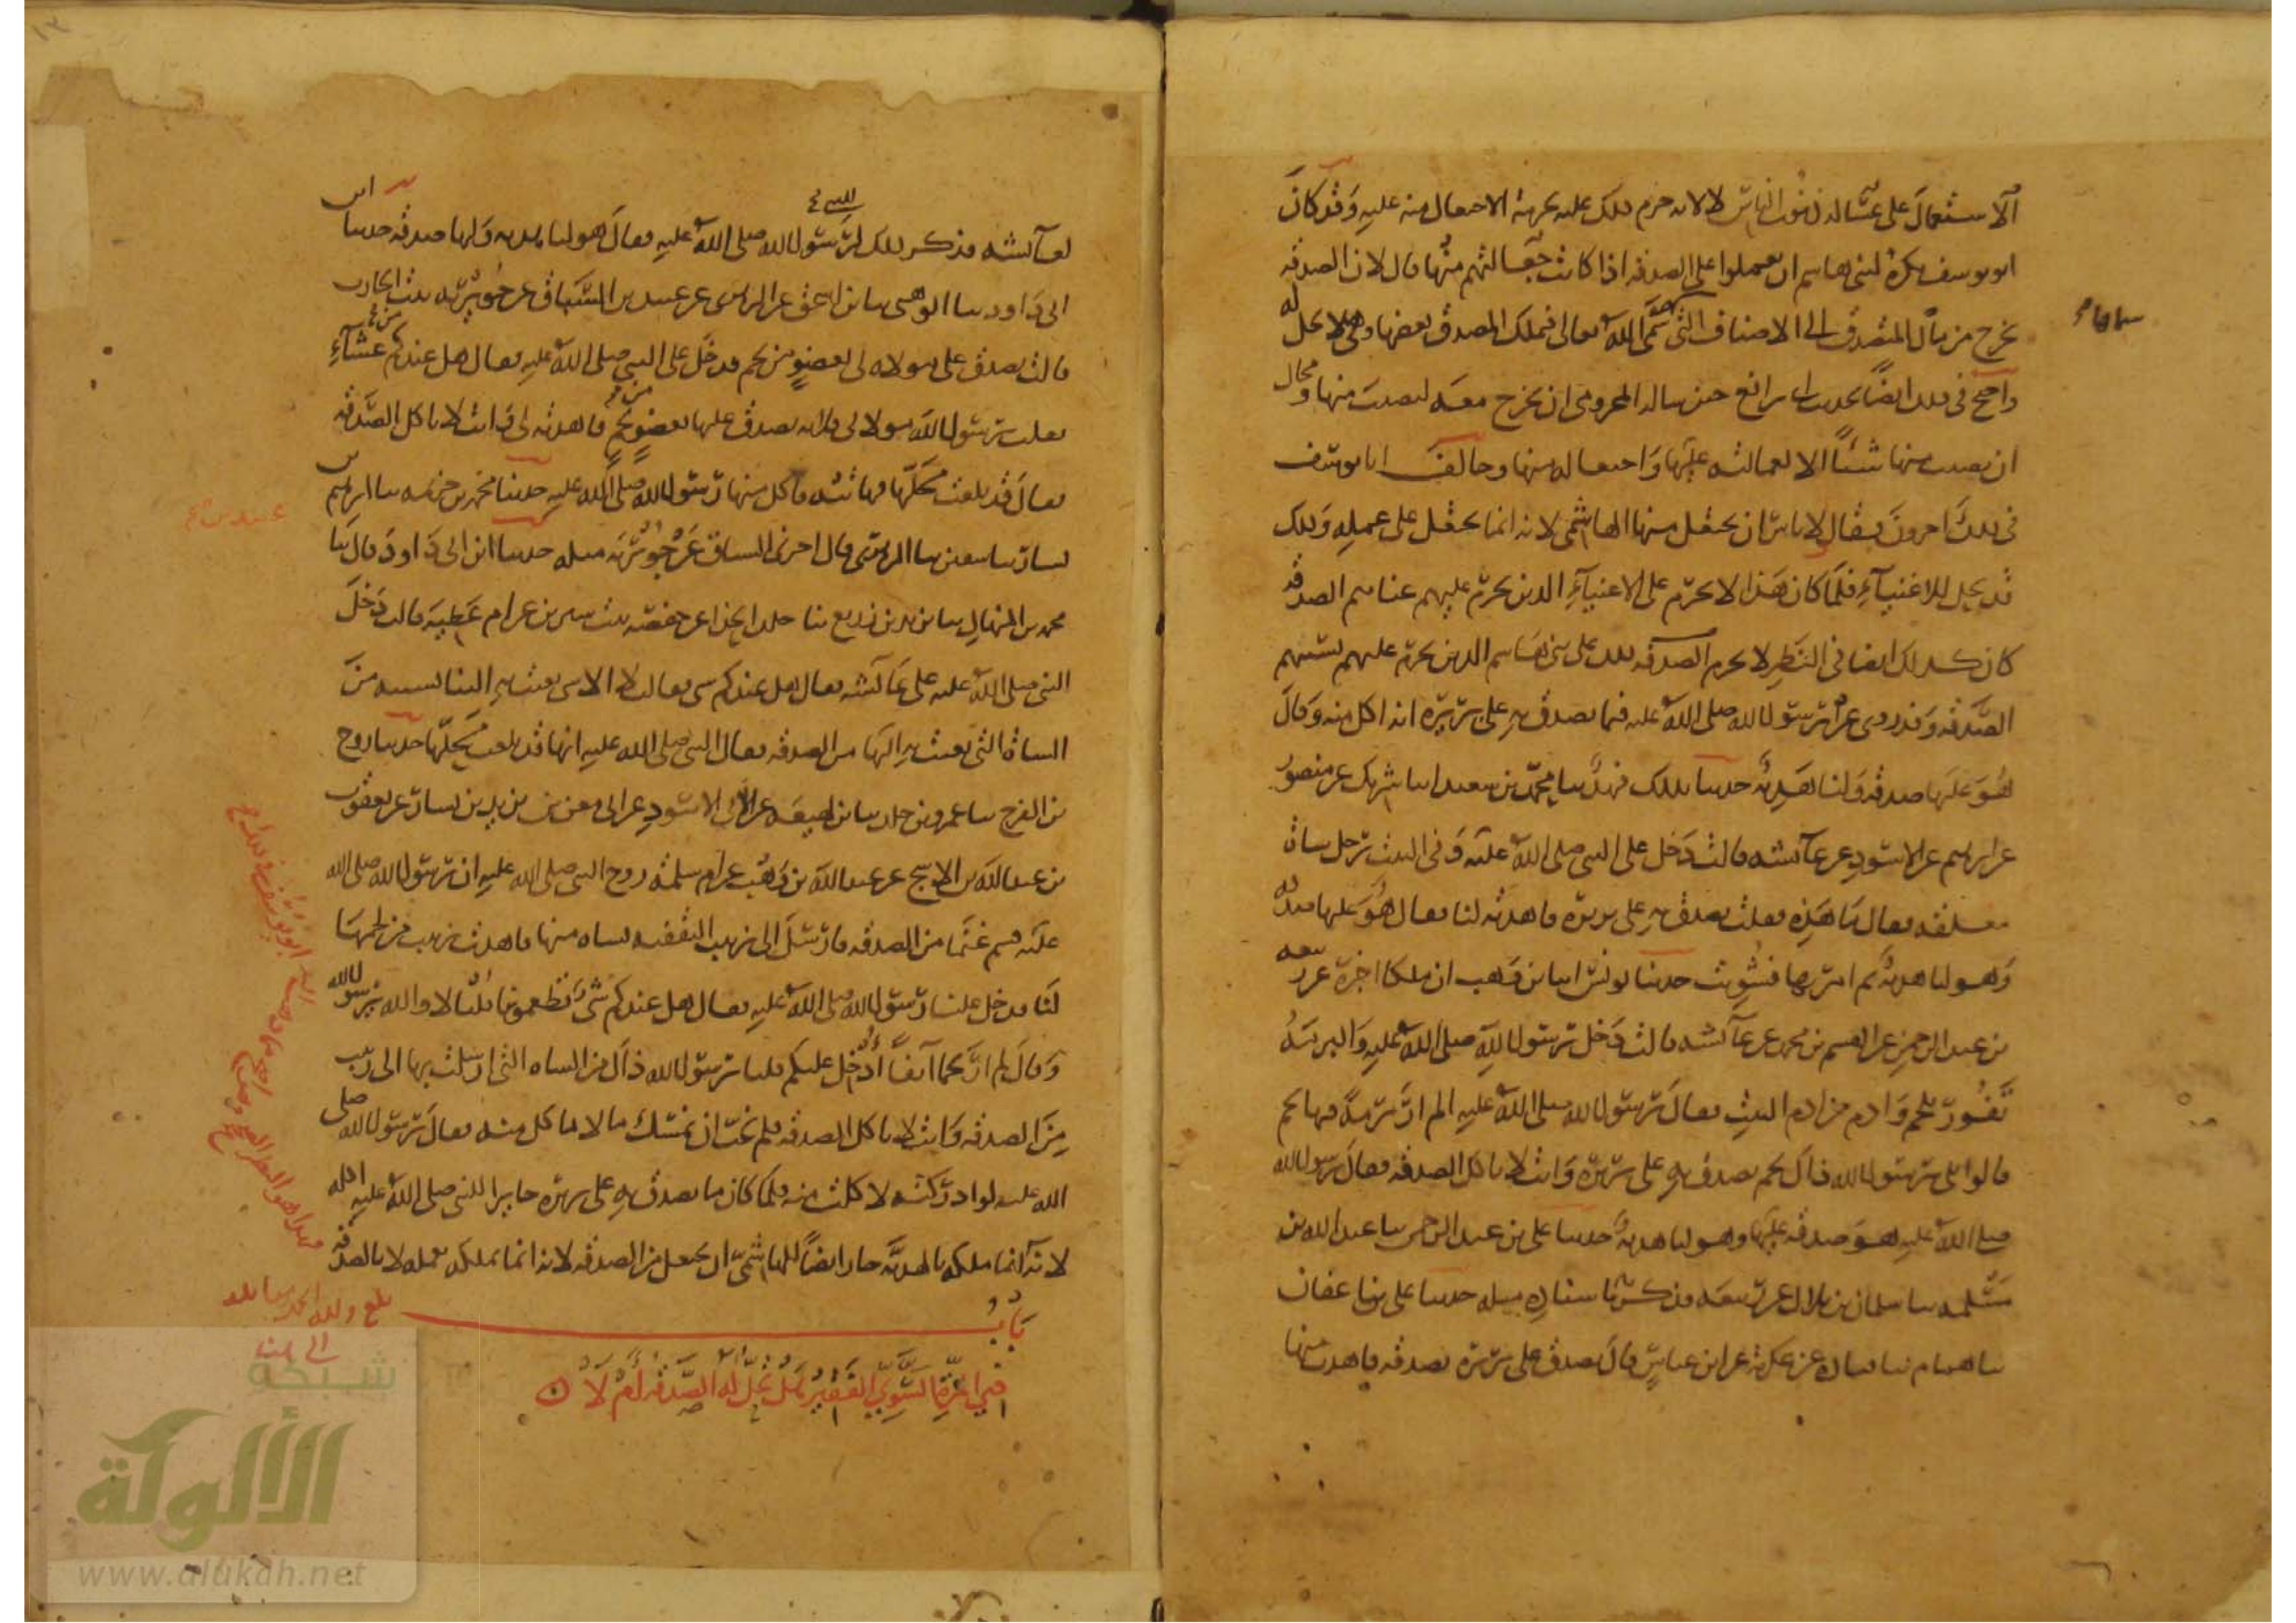 الاستعمال على غسالة ذنوب الناس لا لانه حرم ذلك عليه بحرمة الاجتعال منه عليه وقد كان
ابو يوسف يكره لبني هاشم ان يعملوا على الصدقة اذا كانت جعالتهم منها قال لان الصدقة
تخرج من مال المتصدق الى الاصناف التي سمى الله تعالى فيملك المصدق بعضها وهي لا تحل له
واحتج في ذلك ايضا بحديث ابي رافع حين ساله المخزومي ان يخرج معه ليصيب منها ومحال
ان يصيب منها شيئا الا لعمالته عليها واجتعاله منها وخالف ابا يوسف
في ذلك اخرون فقال لا باس ان يجتعل منها الهاشمي لانه انما يجتعل على عمله وذلك
قد يحل للاغنياء فلما كان هذا لا يحرم على الاغنياء الذين يحرم عليهم غناهم الصدقة
كان كذلك ايضا في النظر لا يحرم ذلك على بني هاشم الذين يحرم عليهم نسبهم
الصدقة وقد روي عن رسول الله صلى الله عليه فيما تصدق به على بريرة انه اكل منه وقال
هو عليها صدقة ولنا هدية حدثنا بذلك فهد ثنا محمد بن سعيد انبا شريك عن منصور
عن ابراهيم عن الاسود عن عائشة قالت دخل علي النبي صلى الله عليه وفي البيت رجل شاة
معلقة فقال ما هذه فقلت تصدق به على بريرة فاهدته لنا فقال هو عليها صدقة
وهو لنا هدية ثم امر بها فشويت حدثنا يونس انبا ابن وهب ان ملكا اخبره عن ربيعة
بن عبد الرحمن عن القسم بن محمد عن عائشة قالت دخل رسول الله صلى الله عليه والبرمة
تفور بلحم وادم من ادم البيت فقال رسول الله صلى الله عليه الم ار برمة فيها لحم
قالوا بلى يا رسول الله ذاك لحم تصدق به على بريرة وانت لا تاكل الصدقة فقال رسول الله
صلى الله عليه هو صدقة عليها وهو لنا هدية حدثنا علي بن عبد الرحمن ثنا عبد الله بن
مسلمة ثنا سليمان بن بلال عن ربيعة فذكر باسناده مثله حدثنا علي ثنا عفان
ثنا همام ثنا قتادة عن عكرمة عن ابن عباس قال تصدق على بريرة بصدقة فاهدت منها
لعائشة فذكر ذلك لرسول الله صلى الله عليه فقال هو لنا هدية ولها صدقة حدثنا ابن
ابي داود ثنا الوهبي ثنا ابن اسحق عن الزهري عن عبيد بن السباق عن جويرية بنت الحارث
قالت تصدق على مولاة لي بعضو من لحم فدخل علي النبي صلى الله عليه فقال هل عندكم عشاء
فقلت يا رسول الله مولاتي فلانة تصدق عليها بعضو لحم فاهدته لي وانت لا تاكل الصدقة
فقال قد بلغت محلها فهاتيه فاكل منها رسول الله صلى الله عليه حدثنا محمد بن خزيمة ثنا ابرهيم
بن بشار ثنا سفين ثنا الزهري قال اخبرني ابن السباق عن جويرية مثله حدثنا ابن ابي داود قال ثنا
محمد بن المنهال ثنا يزيد بن زريع ثنا خالد الحذاء عن حفصة بنت سيرين عن ام عطية قالت دخل
النبي صلى الله عليه على عائشة فقال هل عندكم شي فقالت لا الا شي بعثت به الينا نسيبة من
الشاة التي بعثت به اليها من الصدقة فقال النبي صلى الله عليه انها قد بلغت محلها حدثنا روح
بن الفرج ثنا عمرو بن خالد ثنا ابن لهيعة عن ابي الاسود عن ابي معن يزيد بن يسار عن يعقوب
بن عبد الله بن الاشج عن عبد الله بن وهب عن ام سلمة زوج النبي صلى الله عليه ان رسول الله صلى الله
عليه قسم غنما من الصدقة فارسل الى زينب الثقفية بشاة منها فاهدت زينب من لحمها
لنا فدخل علينا رسول الله صلى الله عليه فقال هل عندكم شي تطعمونا قلنا لا والله يا رسول الله
وقال الم ار لحما آنفا ادخل عليكم قلنا يا رسول الله ذاك من الشاة التي ارسلت بها الى زينب
من الصدقة وانت لا تاكل الصدقة فلم نحب ان نمسك ما لا تاكل منه فقال رسول الله صلى
الله عليه لو ادركته لاكلت منه فلما كان ما تصدق به على بريرة جايزا للنبي صلى الله عليه اكله
لانه انما ملكه بالهدية جاز ايضا للهاشمي ان يجتعل من الصدقة لانه انما يملكه بعمله لا بالصدقة
باب
في المرة السوي الفقير هل تحل له الصدقة ام لا
شبكة
الألوكة
www.alukah.net